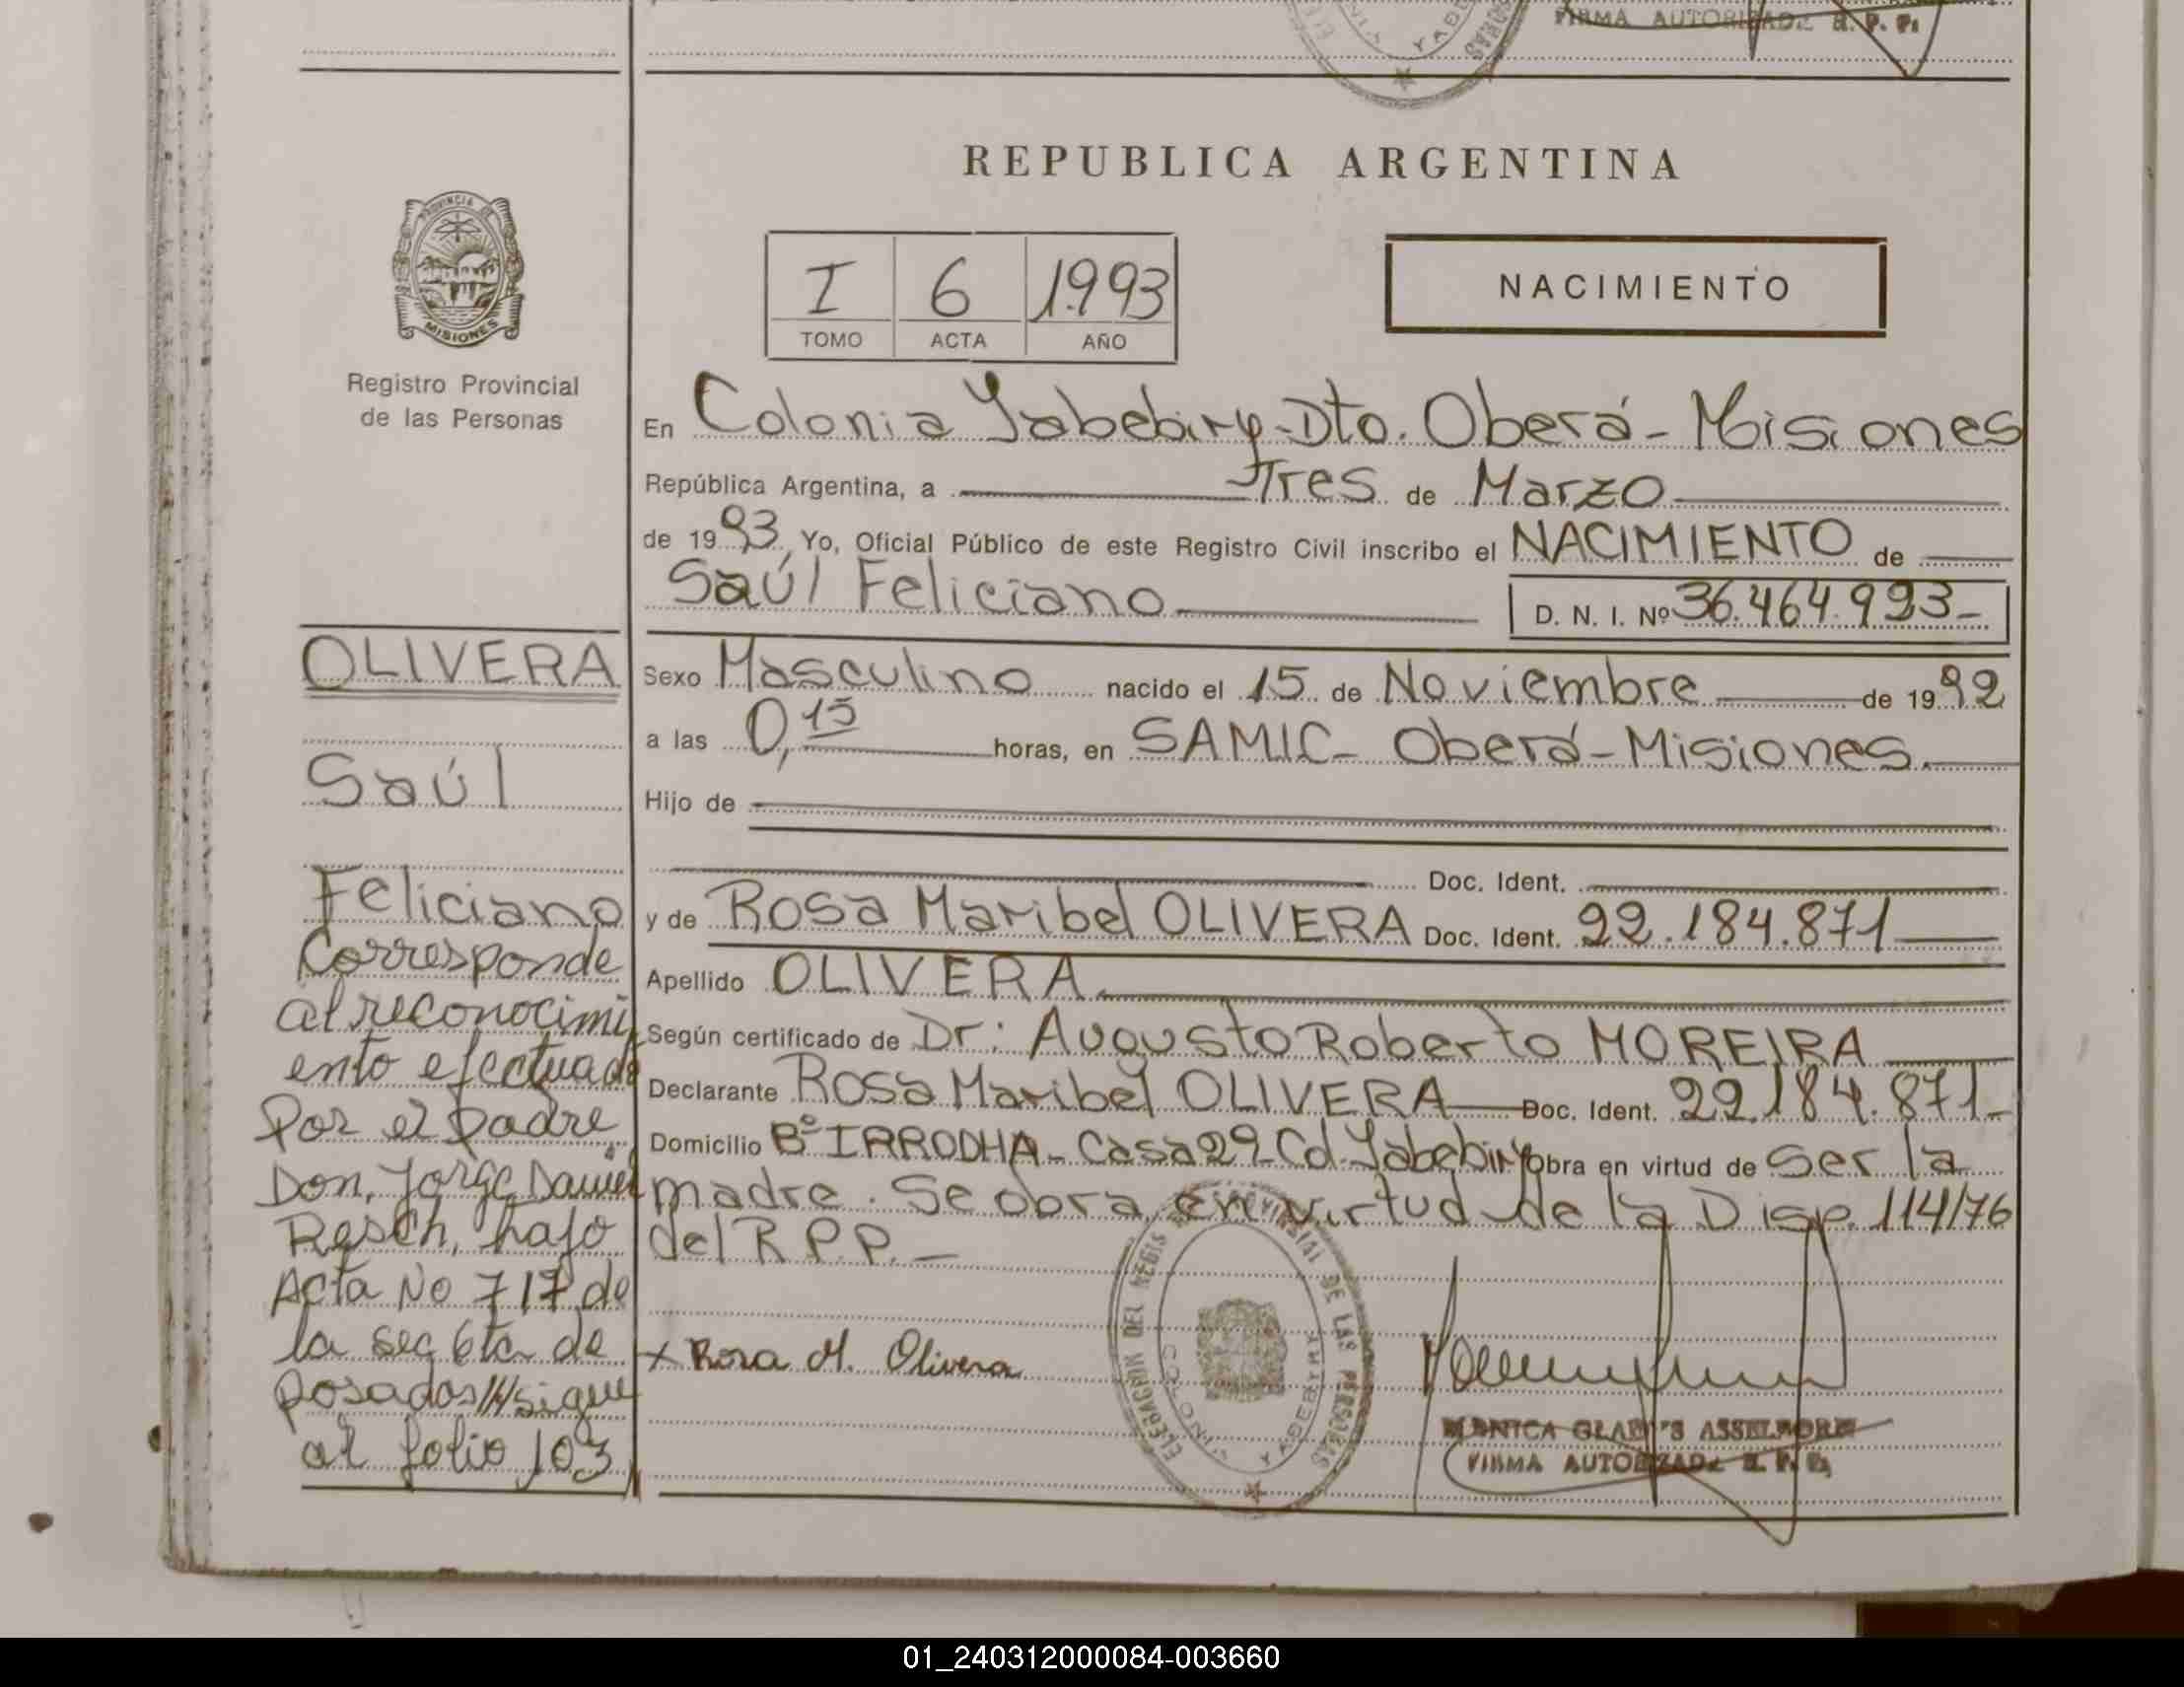 FIRMA AUTORIZADA R. P. P.
REPUBLICA ARGENTINA
PROVINCIA DE
MISIONES
Registro Provincial
de las Personas
I 6 1993
TOMO ACTA AÑO
NACIMIENTO
En Colonia Yabebiry-Dto. Oberá-Misiones
República Argentina, a Tres de Marzo
de 1993 Yo, Oficial Público de este Registro Civil inscribo el NACIMIENTO de
Saúl Feliciano
D. N. I. Nº 36.464.993-
OLIVERA
Saúl
Feliciano
Corresponde
al reconocimi
ento efectuado
por el padre
Don, Jorge Daniel
Resch, bajo
Acta No 717 de
la sec 6ta de
posadas///sigue
al folio 103
Sexo Masculino nacido el 15 de Noviembre de 1992
a las 0,15 horas, en SAMIC- Oberá-Misiones.
Hijo de
Doc. Ident.
y de Rosa Maribel OLIVERA Doc. Ident. 22.184.871
Apellido OLIVERA.
Según certificado de Dr: Augusto Roberto MOREIRA
Declarante Rosa Maribel OLIVERA Doc. Ident. 22.184.871-
Domicilio Bº IRRODHA- Casa 29-Col. Yabebiry obra en virtud de Ser la
madre. Se obra en virtud de la Disp. 114/76
del R.P.P.-
DELEGACION DEL REGISTRO PROVINCIAL DE LAS PERSONAS
COLONIA YABEBIRY
x Rosa M. Olivera
MONICA GLADYS ASSELBORN
FIRMA AUTORIZADA R. P. P.
01_240312000084-003660